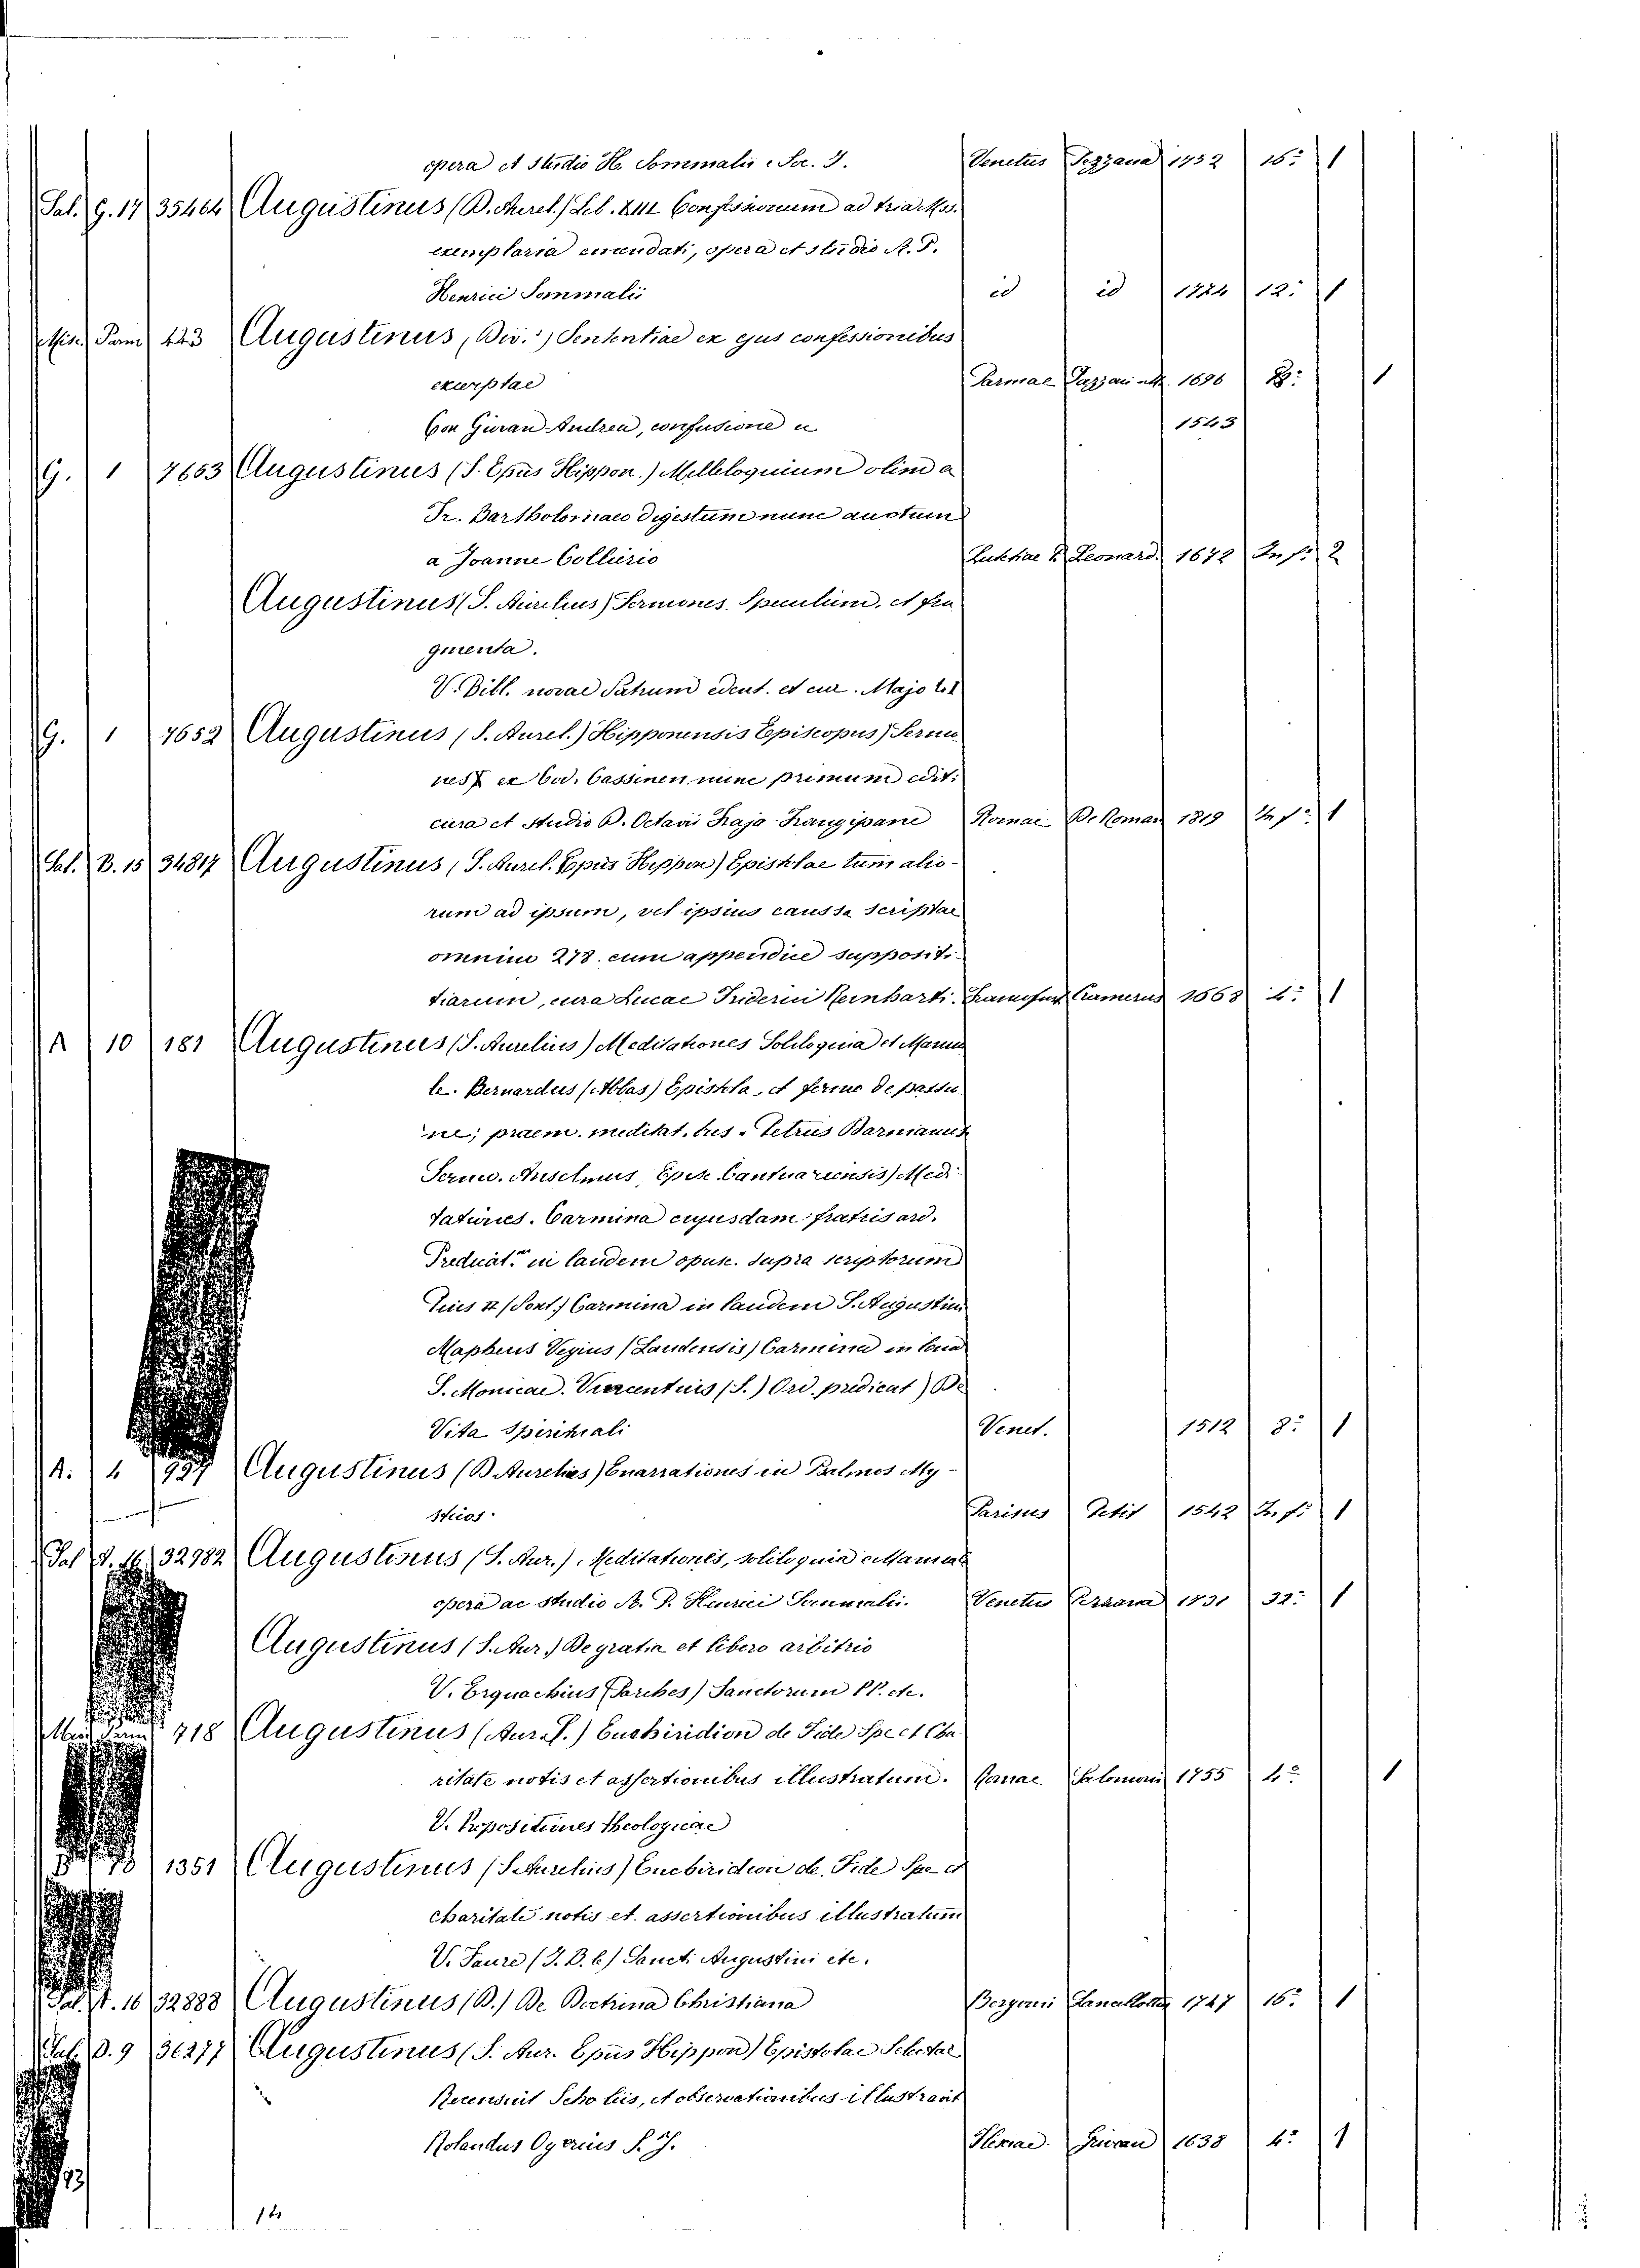 opera et studio H. Sommalii Soc. J. Venetiis Pezzana 1752 16° 1
Sal. G. 17 35464 Augustinus (B. Aurel.) Lib. XIII Confessionum ad tria Mss.
exemplaria emendati, opera et studio R. P.
Henrici Sommalii id id 1724 12° 1
Misc. Parm 443 Augustinus, Div.°) Sententiae ex ejus confessionibus
excerptae Parmae 1696 8° 1
Andrea, 1543
G. 1 7653 Augustinus (S. Epus Hippon.) Milleloquium olim a
Fr. Bartholomaeo digestum nunc auctum
a Joanne Collierio Leonard. 1672 In f° 2
Augustinus (S. Aurelius) Sermones. Speculum, et fra
gmenta.
V. Bibl. novae Patrum edent. et cur. Majo t. 1
G. 1 7652 Augustinus (S. Aurel.) Hipponensis Episcopus) Sermo
nes X ex Cod. Cassinen nunc primum edit.
cura et studio D. Octavii Frajo Frangipane Romae De Roman 1819 In f° 1
Sal. B. 15 34817 Augustinus, (S. Aurel. Epus Hippon) Epistolae tum alio-
rum ad ipsum, vel ipsius caussa scriptae
omnino 278. cum appendice suppositi-
tiarum, cura Lucae Friderici Reinharti. 1668 4° 1
A 10 181 Augustinus (S. Aurelius) Meditationes Soliloquia et Manua
le. Bernardus (Abbas) Epistola, et sermo de passio
ne; praem. meditat. bus. Petrus Damianus
Sermo. Anselmus, Epis. Cantuariensis) Medi
tationes. Carmina cujusdam fratris ord.
Predicat. in laudem opusc. supra scriptorum
Pius II (Pont.) Carmina in laudem S. Augustini
Mapheus Vegius (Laudensis) Carmina in laud
S. Monicae. Vincentius (S.) Ord. predicat) De
Vita Spirituali Venet. 1512 8° 1
A. 4 937 Augustinus (B Aurelius) Enarrationes in Psalmos My-
sticos. Parisiis Petit 1542 In f° 1
Sal A. 16 32982 Augustinus (S. Aur.), Meditationes, soliloquia et Manual
opera ac studio R. P. Henrici Sommalii. Venetiis Pezzana 1731 32° 1
Augustinus (S. Aur.) De gratia et libero arbitrio
V. Erquachius (Parches) Sanctorum PP. etc.
Misc. Parm 718 Augustinus (Aur. S.) Enchiridion de Fide Spe et Cha
ritate notis et assertionibus illustratum. Romae Salomoni 1755 4° 1
V. Propositiones theologicae
1351 Augustinus (S. Aurelius) Enchiridion de Fide Spe et
charitate notis et assertionibus illustratum
V. Faure (J. B. e) Sancti Augustini etc.
Sal. A. 16 32888 Augustinus (B.) De Doctrina Christiana Bergomi Lancellottus 1747 16° 1
Sal. B. 9 36277 Augustinus (S. Aur. Epus Hippon) Epistolae Selectae
Recensuit Scholiis, et observationibus illustravit
Rolandus Ogerius S. J. 1638 4° 1
12